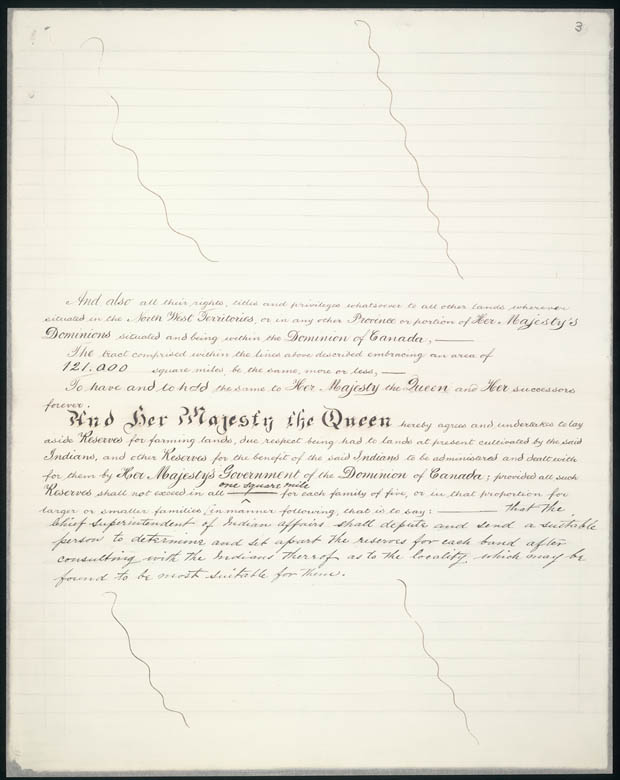 3
And also all their rights, titles and privileges whatsoever to all other lands wherever
situated in the North West Territories, or in any other Province or portion of Her Majesty's
Dominions situated and being within the Dominion of Canada;
The tract comprised within the lines above described embracing an area of
121.000 square miles, be the same, more or less;
To have and to hold the same to Her Majesty the Queen and Her successors
forever.
And Her Majesty the Queen hereby agrees and undertakes to lay
aside Reserves for farming lands, due respect being had to lands at present cultivated by the said
Indians, and other Reserves for the benefit of the said Indians to be administered and dealt with
for them by Her Majesty's Government of the Dominion of Canada; provided all such
one square mile
Reserves shall not exceed in all for each family of five, or in that proportion for
larger or smaller families, in manner following, that is to say: that the
Chief Superintendent of Indian affairs shall depute and send a suitable
person to determine and set apart the reserves for each band after
consulting with the Indians thereof as to the locality which may be
found to be most suitable for them.